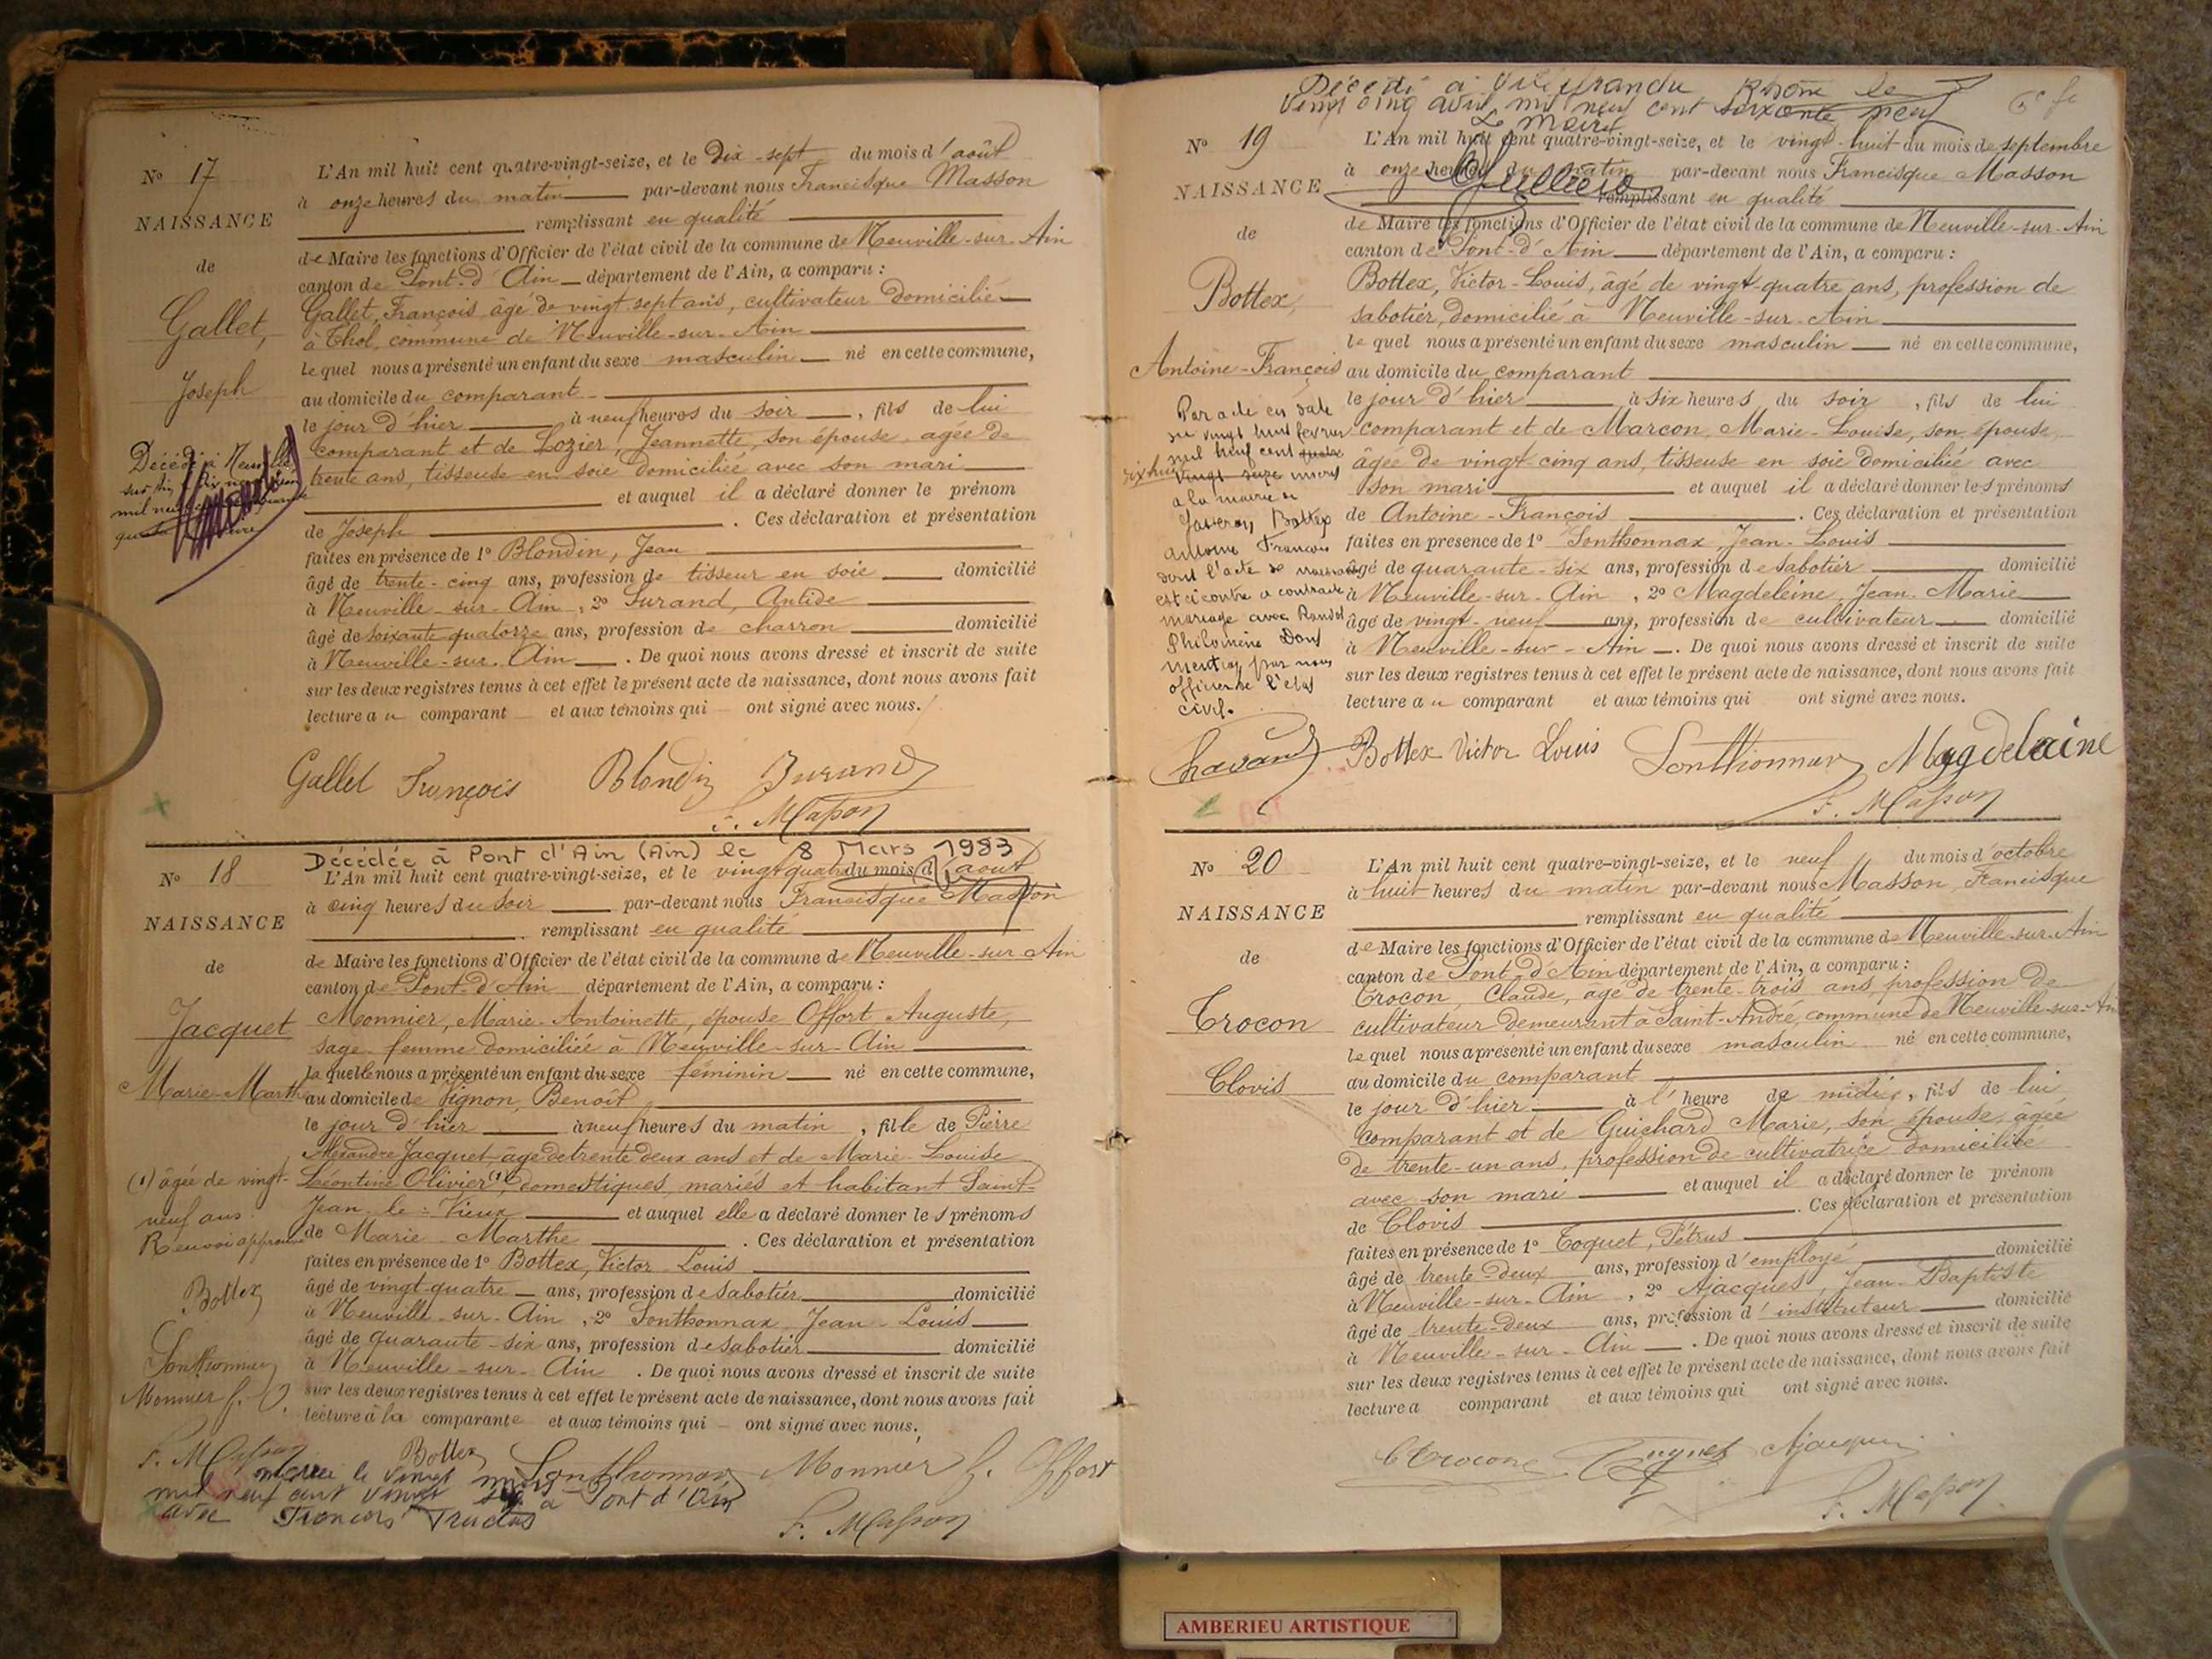 N° 17
NAISSANCE
de
Gallet,
Joseph
Décédé à Neuville
L'An mil huit cent quatre-vingt-seize, et le Dix-sept du mois d'août
à onze heures du matin par-devant nous Francisque Masson
remplissant en qualité
de Maire les fonctions d'Officier de l'état civil de la commune de Neuville-sur-Ain
canton de Pont-d'Ain département de l'Ain, a comparu :
Gallet, François âgé de vingt-sept ans, cultivateur domicilié
à Thol, commune de Neuville-sur-Ain
lequel nous a présenté un enfant du sexe masculin né en cette commune,
au domicile du comparant
le jour d'hier à neuf heures du soir, fils de lui
comparant et de Lozier, Jeannette, son épouse, agée de
trente ans, tisseuse en soie domiciliée avec son mari
et auquel il a déclaré donner le prénom
de Joseph. Ces déclaration et présentation
faites en présence de 1° Blondin, Jean
âgé de trente-cinq ans, profession de tisseur en soie domicilié
à Neuville-sur-Ain, 2° Durand, Antide
âgé de soixante quatorze ans, profession de charron domicilié
à Neuville-sur-Ain. De quoi nous avons dressé et inscrit de suite
sur les deux registres tenus à cet effet le présent acte de naissance, dont nous avons fait
lecture au comparant et aux témoins qui ont signé avec nous.
Gallet François Blondin Durand
F. Masson
Décédée à Pont d'Ain (Ain) le 8 Mars 1983
N° 18
NAISSANCE
de
Jacquet
Marie-Marthe
(1) âgée de vingt-
neuf ans.
Renvoi approuvé
Bottex
Sonthonnax
Monnier f. O.
F. Masson
L'An mil huit cent quatre-vingt-seize, et le vingt quatre du mois d'août
à cinq heures du soir par-devant nous Francisque Masson
remplissant en qualité
de Maire les fonctions d'Officier de l'état civil de la commune de Neuville-sur-Ain
canton de Pont-d'Ain département de l'Ain, a comparu :
Monnier, Marie-Antoinette, épouse Offort Auguste,
sage-femme domiciliée à Neuville-sur-Ain
laquelle nous a présenté un enfant du sexe féminin né en cette commune,
au domicile de Vignon, Benoît
le jour d'hier à neuf heures du matin, fille de Pierre
Alexandre Jacquet, âgé de trente deux ans et de Marie-Louise
Léontine Olivier (1), domestiques, mariés et habitant Saint-
Jean-le-Vieux et auquel elle a déclaré donner les prénoms
de Marie-Marthe. Ces déclaration et présentation
faites en présence de 1° Bottex, Victor-Louis
âgé de vingt-quatre ans, profession de sabotier domicilié
à Neuville-sur-Ain, 2° Sonthonnax Jean-Louis
âgé de quarante-six ans, profession de sabotier domicilié
à Neuville-sur-Ain. De quoi nous avons dressé et inscrit de suite
sur les deux registres tenus à cet effet le présent acte de naissance, dont nous avons fait
lecture à la comparante et aux témoins qui ont signé avec nous.
Bottex Sonthonnax Monnier f. Offort
F. Masson
mariée le vingt mars
mil neuf cent vingt six à Pont d'Ain
avec
Décédé à Villefranche Rhône le
vingt cinq avril mil neuf cent soixante neuf
Le maire
N° 19
NAISSANCE
de
Bottex,
Antoine-François
Par acte en date
du vingt huit février
mil neuf cent
dix huit
vingt seize inscrit
a la mairie de
Bottex
Antoine François
dont l'acte de naissance
est ci contre a contracté
mariage avec
Philomène Dont
mention par nous
officier de l'état
civil.
L'An mil huit cent quatre-vingt-seize, et le vingt-huit du mois de septembre
à onze heures du matin par-devant nous Francisque Masson
remplissant en qualité
de Maire les fonctions d'Officier de l'état civil de la commune de Neuville-sur-Ain
canton de Pont-d'Ain département de l'Ain, a comparu :
Bottex, Victor-Louis, âgé de vingt-quatre ans, profession de
sabotier, domicilié à Neuville-sur-Ain
lequel nous a présenté un enfant du sexe masculin né en cette commune,
au domicile du comparant
le jour d'hier à six heures du soir, fils de lui
comparant et de Marcon, Marie-Louise, son épouse
âgée de vingt-cinq ans, tisseuse en soie domiciliée avec
son mari et auquel il a déclaré donner les prénoms
de Antoine-François. Ces déclaration et présentation
faites en présence de 1° Sonthonnax, Jean-Louis
âgé de quarante-six ans, profession de sabotier domicilié
à Neuville-sur-Ain, 2° Magdeleine, Jean-Marie
âgé de vingt-neuf ans, profession de cultivateur domicilié
à Neuville-sur-Ain. De quoi nous avons dressé et inscrit de suite
sur les deux registres tenus à cet effet le présent acte de naissance, dont nous avons fait
lecture au comparant et aux témoins qui ont signé avec nous.
Bottex Victor Louis Sonthonnax Magdelaine
F. Masson
N° 20
NAISSANCE
de
Trocon
Clovis
L'An mil huit cent quatre-vingt-seize, et le neuf du mois d'octobre
à huit heures du matin par-devant nous Masson, Francisque
remplissant en qualité
de Maire les fonctions d'Officier de l'état civil de la commune de Neuville-sur-Ain
canton de Pont-d'Ain département de l'Ain, a comparu :
Trocon, Claude, âgé de trente-trois ans, profession de
cultivateur demeurant à Saint-André, commune de Neuville-sur-Ain
lequel nous a présenté un enfant du sexe masculin né en cette commune,
au domicile du comparant
le jour d'hier à l'heure de midi, fils de lui
comparant et de Guichard Marie, son épouse, agée
de trente-un ans, profession de cultivatrice domiciliée
avec son mari et auquel il a déclaré donner le prénom
de Clovis. Ces déclaration et présentation
faites en présence de 1° Toquet, Pétrus
âgé de trente-deux ans, profession d'employé domicilié
à Neuville-sur-Ain, 2° Ajacques, Jean-Baptiste
âgé de trente-deux ans, profession d'instituteur domicilié
à Neuville-sur-Ain. De quoi nous avons dressé et inscrit de suite
sur les deux registres tenus à cet effet le présent acte de naissance, dont nous avons fait
lecture a comparant et aux témoins qui ont signé avec nous.
C Trocon
F. Masson
AMBERIEU ARTISTIQUE